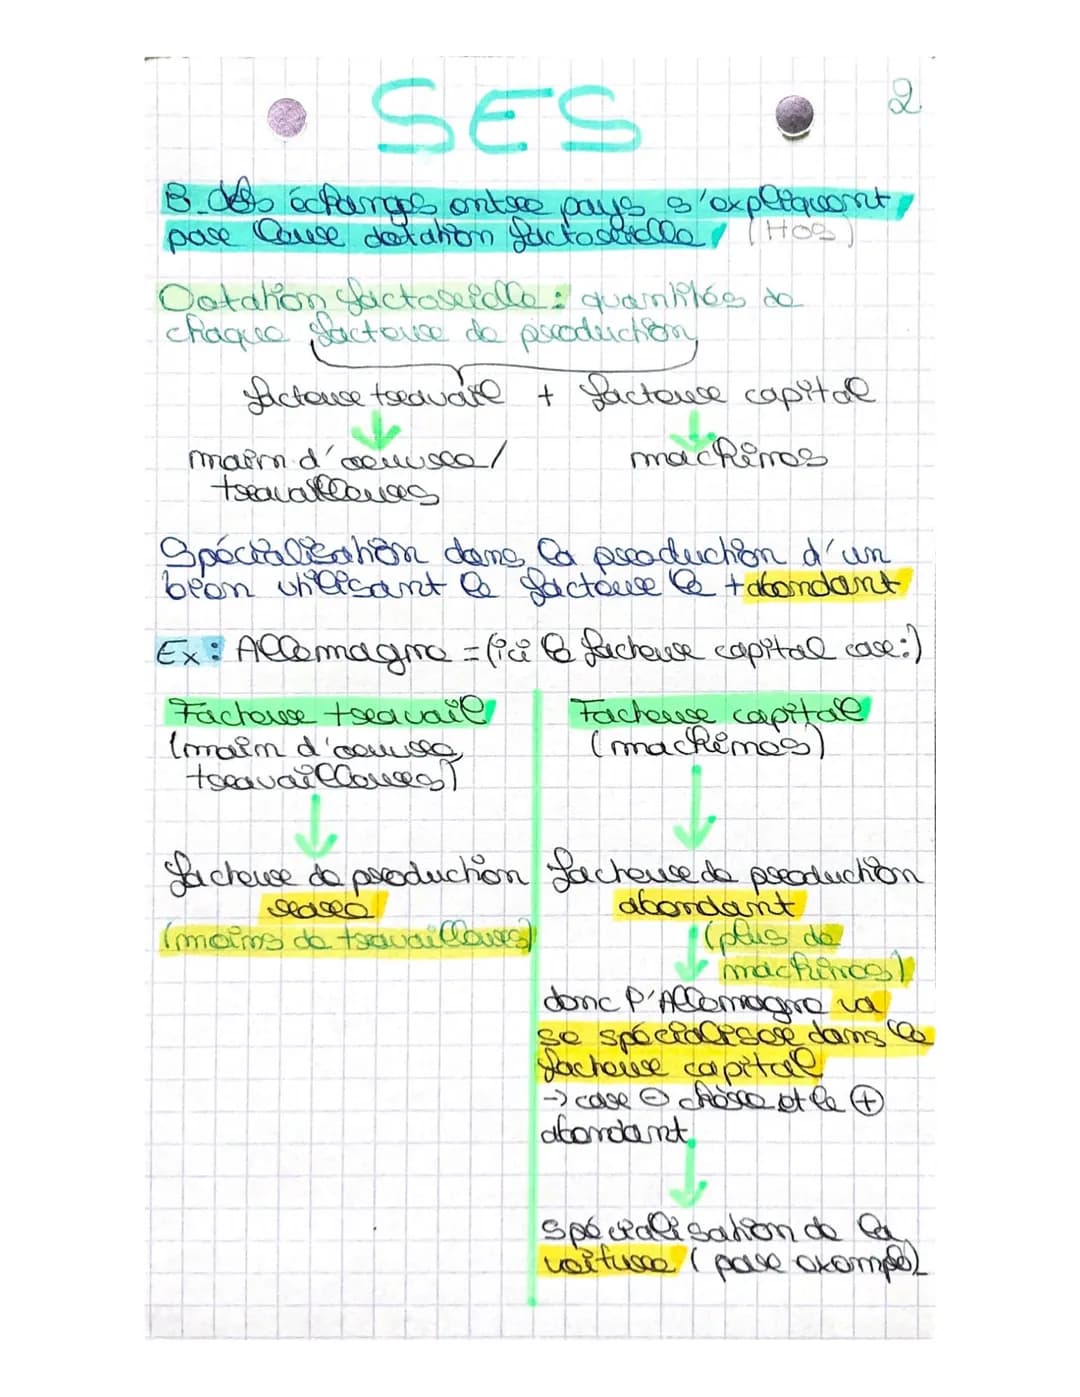 SES
2
B. des échanges entre pays s'expliquent
par leur dotation factorielle (HOS)
Dotation factorielle : quantités de
chaque facteur de production
facteur travail + facteur capital
main d'œuvre/ machines
travailleurs
Spécialisation dans la production d'un
bien utilisant le facteur le + abondant
Ex : Allemagne = (ici le facteur capital car :)
Facteur travail Facteur capital
(main d'œuvre, (machines)
travailleurs)
facteur de production facteur de production
rare abondant
(moins de travailleurs) (plus de
machines)
donc l'Allemagne va
se spécialiser dans le
facteur capital
-> car ⊖ chère et le ⊕
abondant
spécialisation de la
voiture (par exemple)